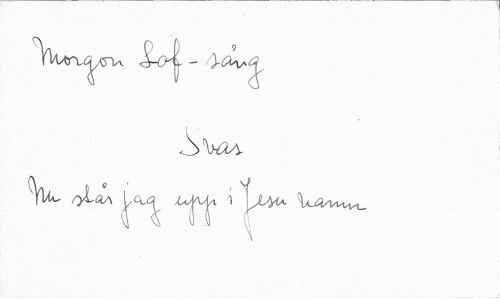 Morgon Lof-sång
Svas
Nu står jag upp i Jesu namn